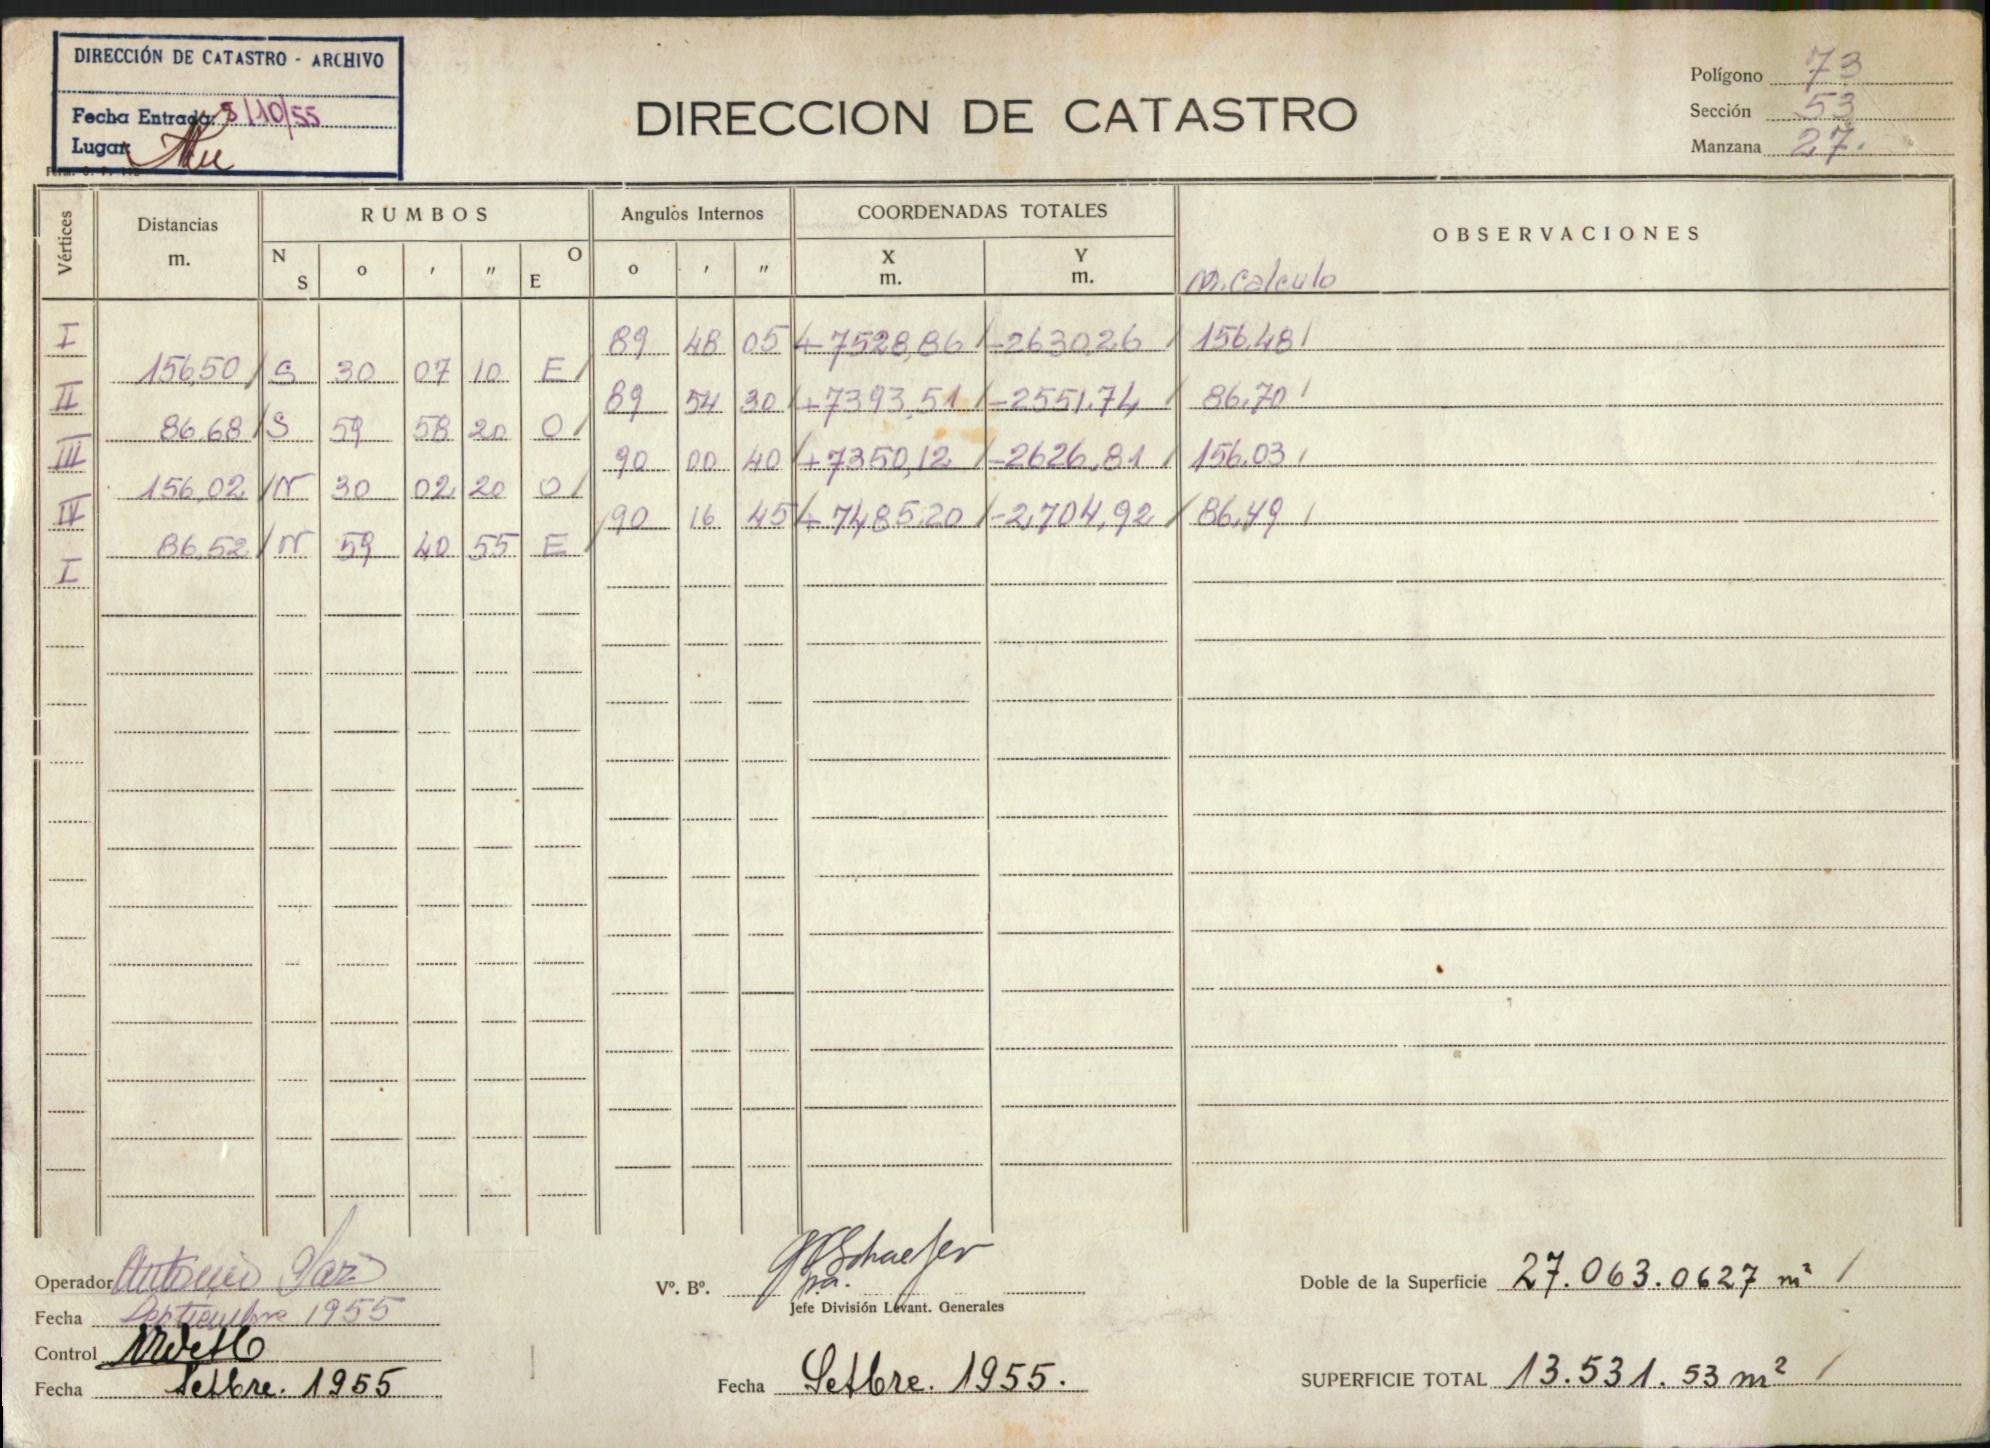 DIRECCIÓN DE CATASTRO - ARCHIVO
Fecha Entrada: 8/10/55
Lugar
DIRECCION DE CATASTRO
Polígono 73
Sección 53
Manzana 27.
Vértices Distancias m. RUMBOS Angulos Internos COORDENADAS TOTALES OBSERVACIONES
N S o ' " O E o ' " X m. Y m. M. Calculo
I 89 48 05 +7528,86 -2630,26 156,48
156,50 S 30 07 10 E
II 89 54 30 +7393,51 -2551,74 86,70
86,68 S 59 58 20 O
III 90 00 40 +7350,12 -2626,81 156,03
156,02 N 30 02 20 O
IV 90 16 45 +7485,20 -2,704,92 86,49
86,52 N 59 40 55 E
I
Operador Antonio
Fecha Septiembre 1955
Control
Fecha Setbre. 1955
Vº. Bº. Schaefer
Jefe División Levant. Generales
Fecha Setbre. 1955.
Doble de la Superficie 27.063.0627 m²
SUPERFICIE TOTAL 13.531.53 m²